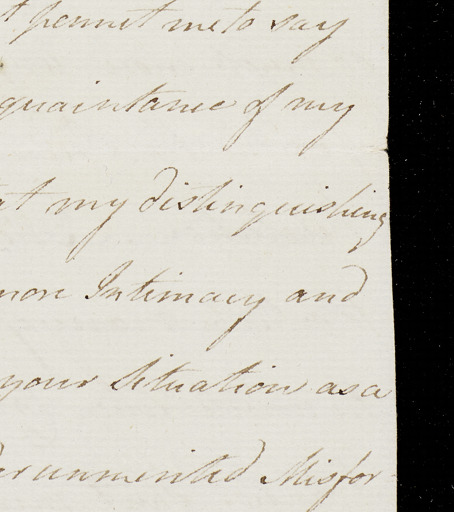 t permit me to say
quaintance of my
at my distinguishing
more Intimacy and
your Situation as a
er unmerited Misfor-